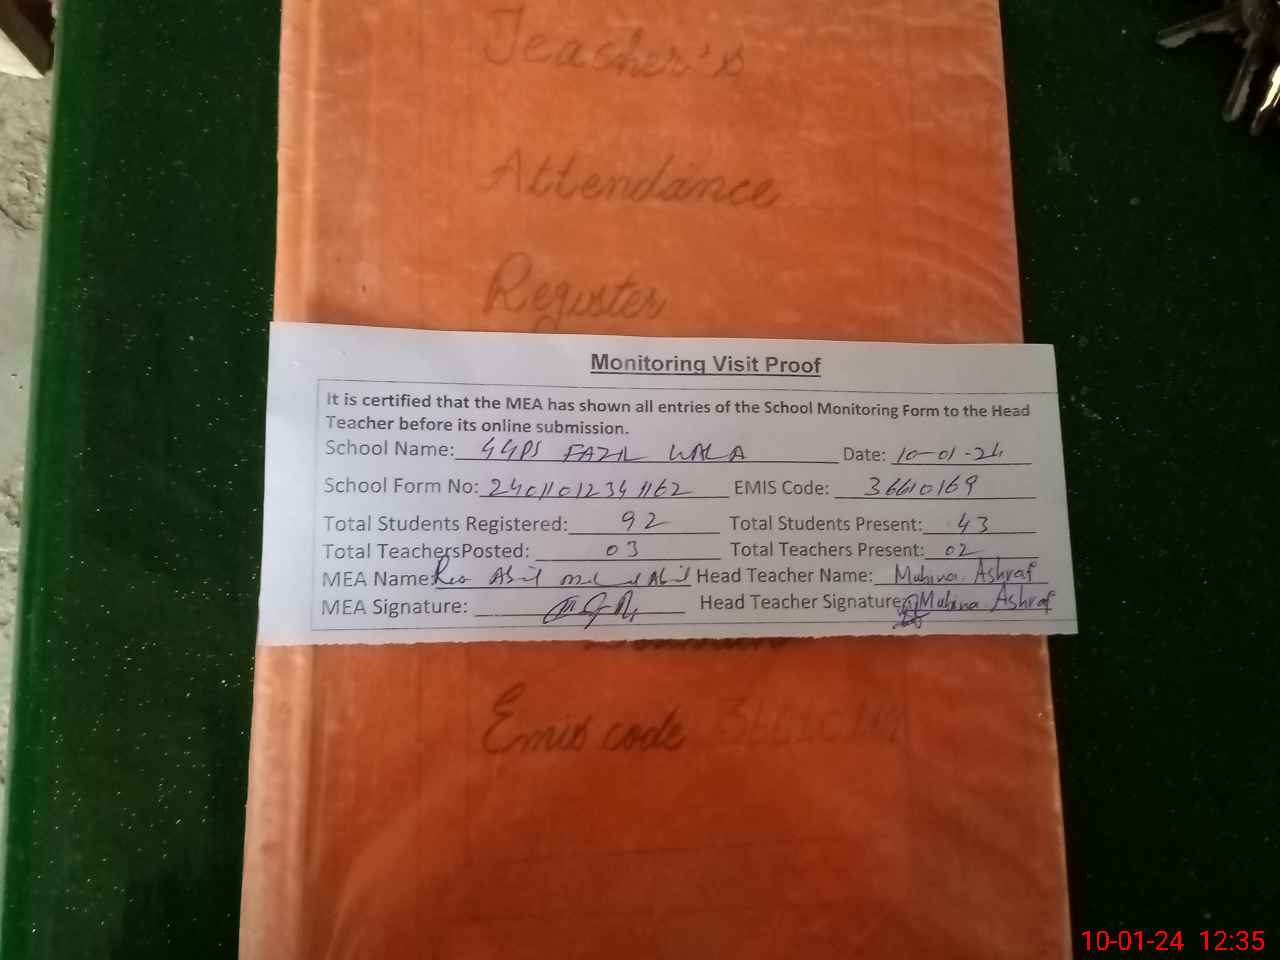 Teacher's
Attendance
Register
Monitoring Visit Proof
It is certified that the MEA has shown all entries of the School Monitoring Form to the Head
Teacher before its online submission.
School Name: GGPS FAZIL WALA Date: 10-01-24
School Form No: 24011012341162 EMIS Code: 36610169
Total Students Registered: 92 Total Students Present: 43
Total TeachersPosted: 03 Total Teachers Present: 02
MEA Name: Head Teacher Name: Mubina Ashraf
MEA Signature: Head Teacher Signature: Mubina Ashraf
Emis code
10-01-24 12:35